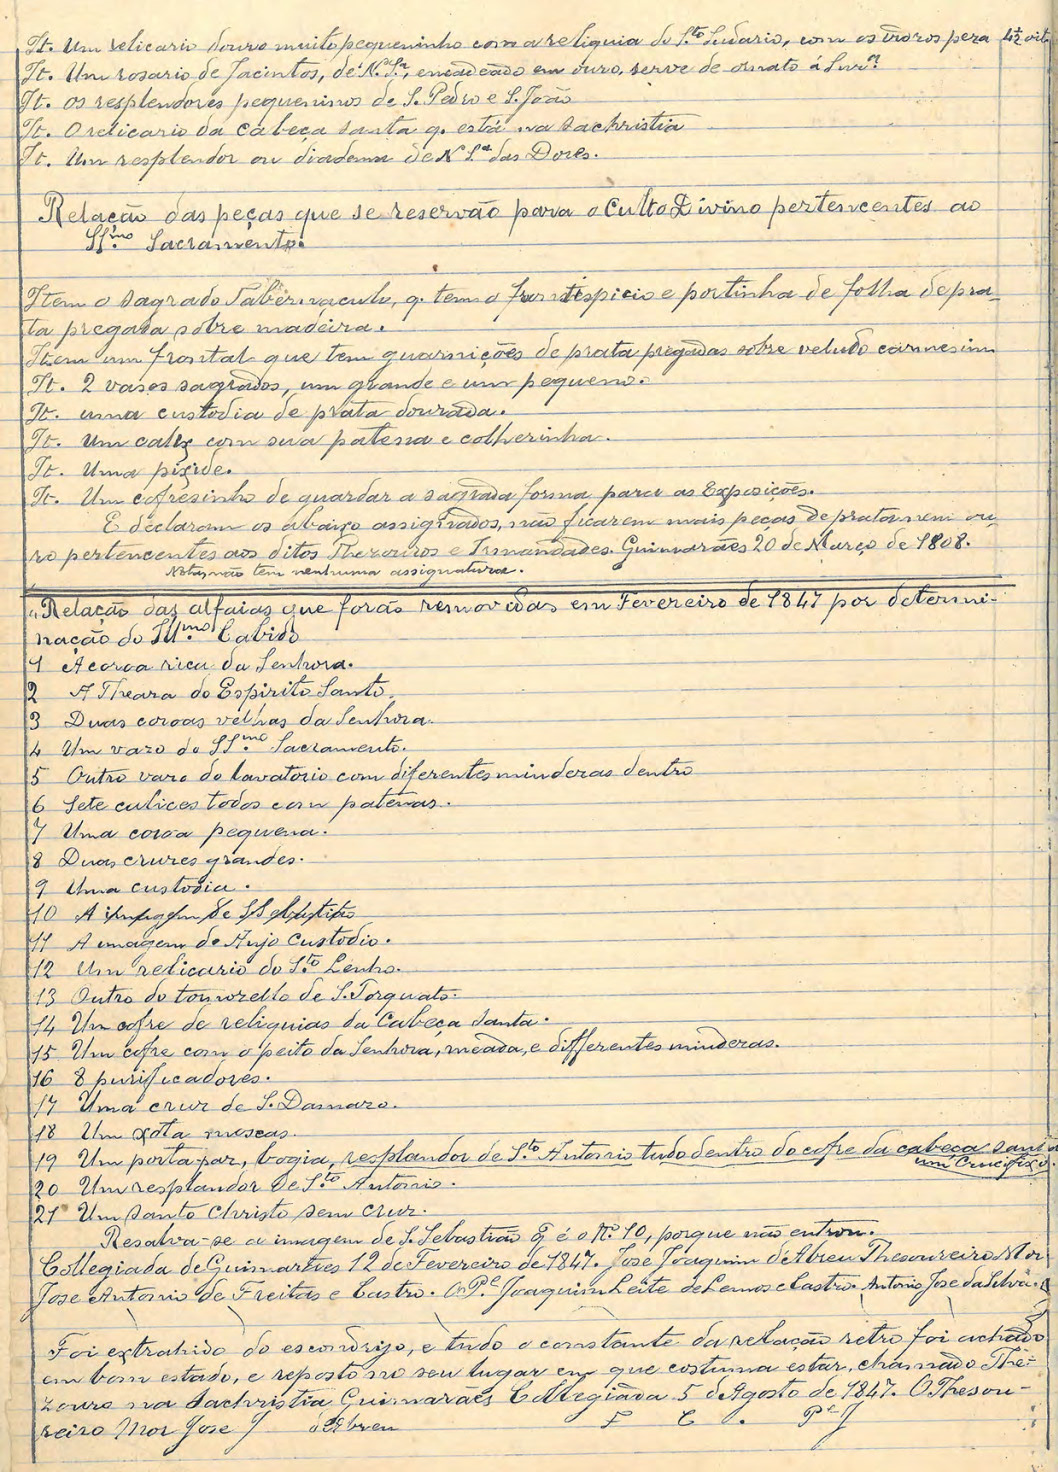 It. Um relicario douro muito pequeninho com a reliquia do S.to Sudario, com os vidros pera 4½ oit.
It. Um rosario de Jacintos, de N.ª Sr.ª, encadeado em ouro, serve de ornato á Snr.ª
It. os resplendores pequeninos de S. Pedro e S. João
It. O relicario da Cabeça santa q. está na sachristia
It. Um resplendor ou diadema de N. S.ª das Dores.
Relação das peças que se reservão para o Culto Divino pertencentes ao
SS.mo Sacramento.
Item o sagrado Tabernaculo, q. tem o frontespicio e portinha de folha de pra-
ta pregada sobre madeira.
Item um frontal que tem guarnições de prata pregadas sobre veludo carmesim
It. 2 vasos sagrados, um grande e um pequeno.
It. uma custodia de prata dourada.
It. Um calix com sua patena e colherinha.
It. Uma pixide.
It. Um cofresinho de guardar a sagrada forma para as Exposições.
E declaram os abaixo assignados, não ficarem mais peças de prata nem ou-
ro pertencentes aos ditos Thezouros e Irmandades. Guimarães 20 de Março de 1808.
Nota, não tem nenhuma assignatura.
"Relação das alfaias que forão removidas em Fevereiro de 1847 por determi-
nação do Ill.mo Cabido
1 A coroa rica da Senhora.
2 A Theara do Espirito Santo.
3 Duas coroas velhas da Senhora.
4 Um vazo do SS.mo Sacramento.
5 Outro vazo do lavatorio com diferentes minderas dentro
6 Sete calices todos com patenas.
7 Uma coroa pequena.
8 Duas cruzes grandes.
9 Uma custodia.
10 A imagem de
11 A imagem do Anjo Custodio.
12 Um relicario do S.to Lenho.
13 Outro do tornozello de S. Torquato.
14 Um cofre de reliquias da Cabeça santa.
15 Um cofre com o peito da Senhora, meada, e differentes minderas.
16 8 purificadores.
17 Uma cruz de S. Damazo.
18 Um xota moscas.
19 Um porta-paz, bogia, resplandor de S.to Antonio tudo dentro do cofre da cabeça santa
um Crucifixo.
20 Um resplandor de S.to Antonio.
21 Um santo Christo sem cruz.
Resalva-se a imagem de S. Sebastião q̃ é o N.º 10, porque não entrou.
Collegiada de Guimarães 12 de Fevereiro de 1847. José Joaquim de Abreu Thesoureiro Mor
Jose Antonio de Freitas e Castro. O P.e Joaquim Leite de Lemos e Castro. Antonio Jose da Silva.
Foi extrahido do escondrijo, e tudo o constante da relação retro foi achado
em bom estado, e reposto no seu lugar em que costuma estar, chamado The-
zouro na Sachristia Guimarães Collegiada 5 d'Agosto de 1847. O Thesou-
reiro Mor Jose J d'Abreu F C . P.e J